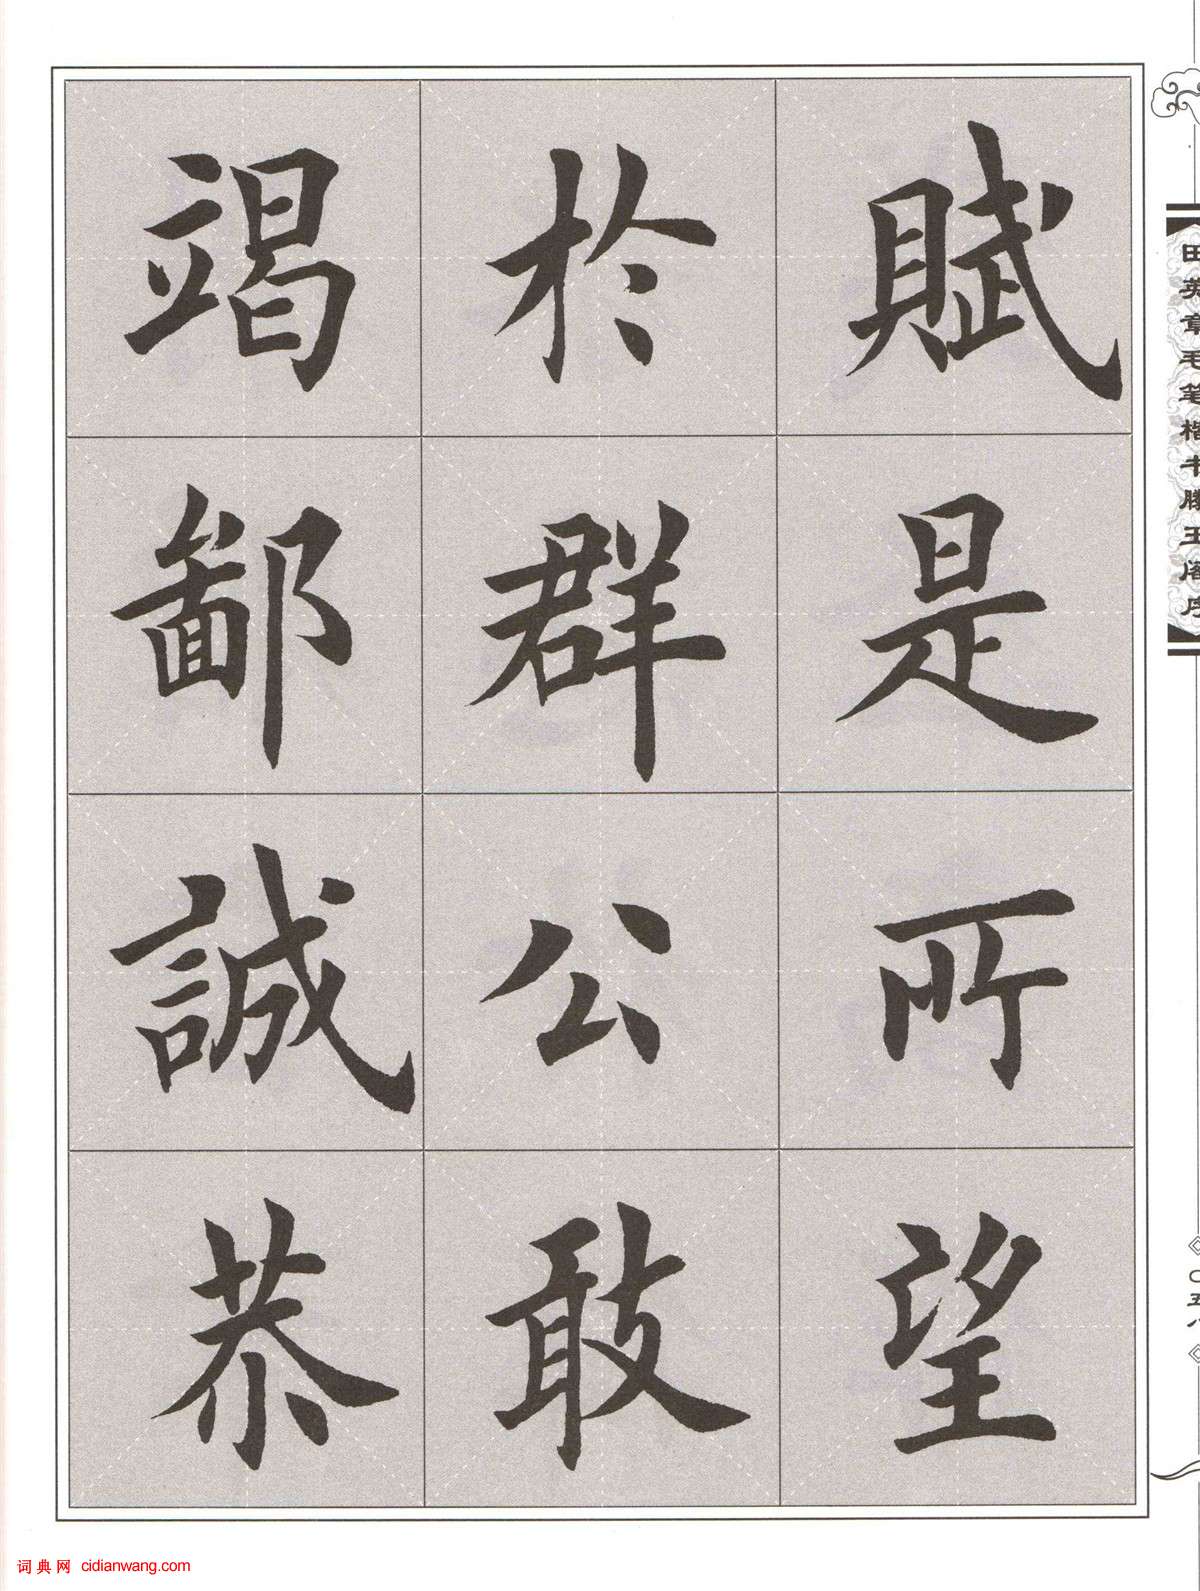 賦是所望
於群公敢
竭鄙誠恭
田英章毛笔楷书滕王阁序
〇五八
词典网 cidianwang.com